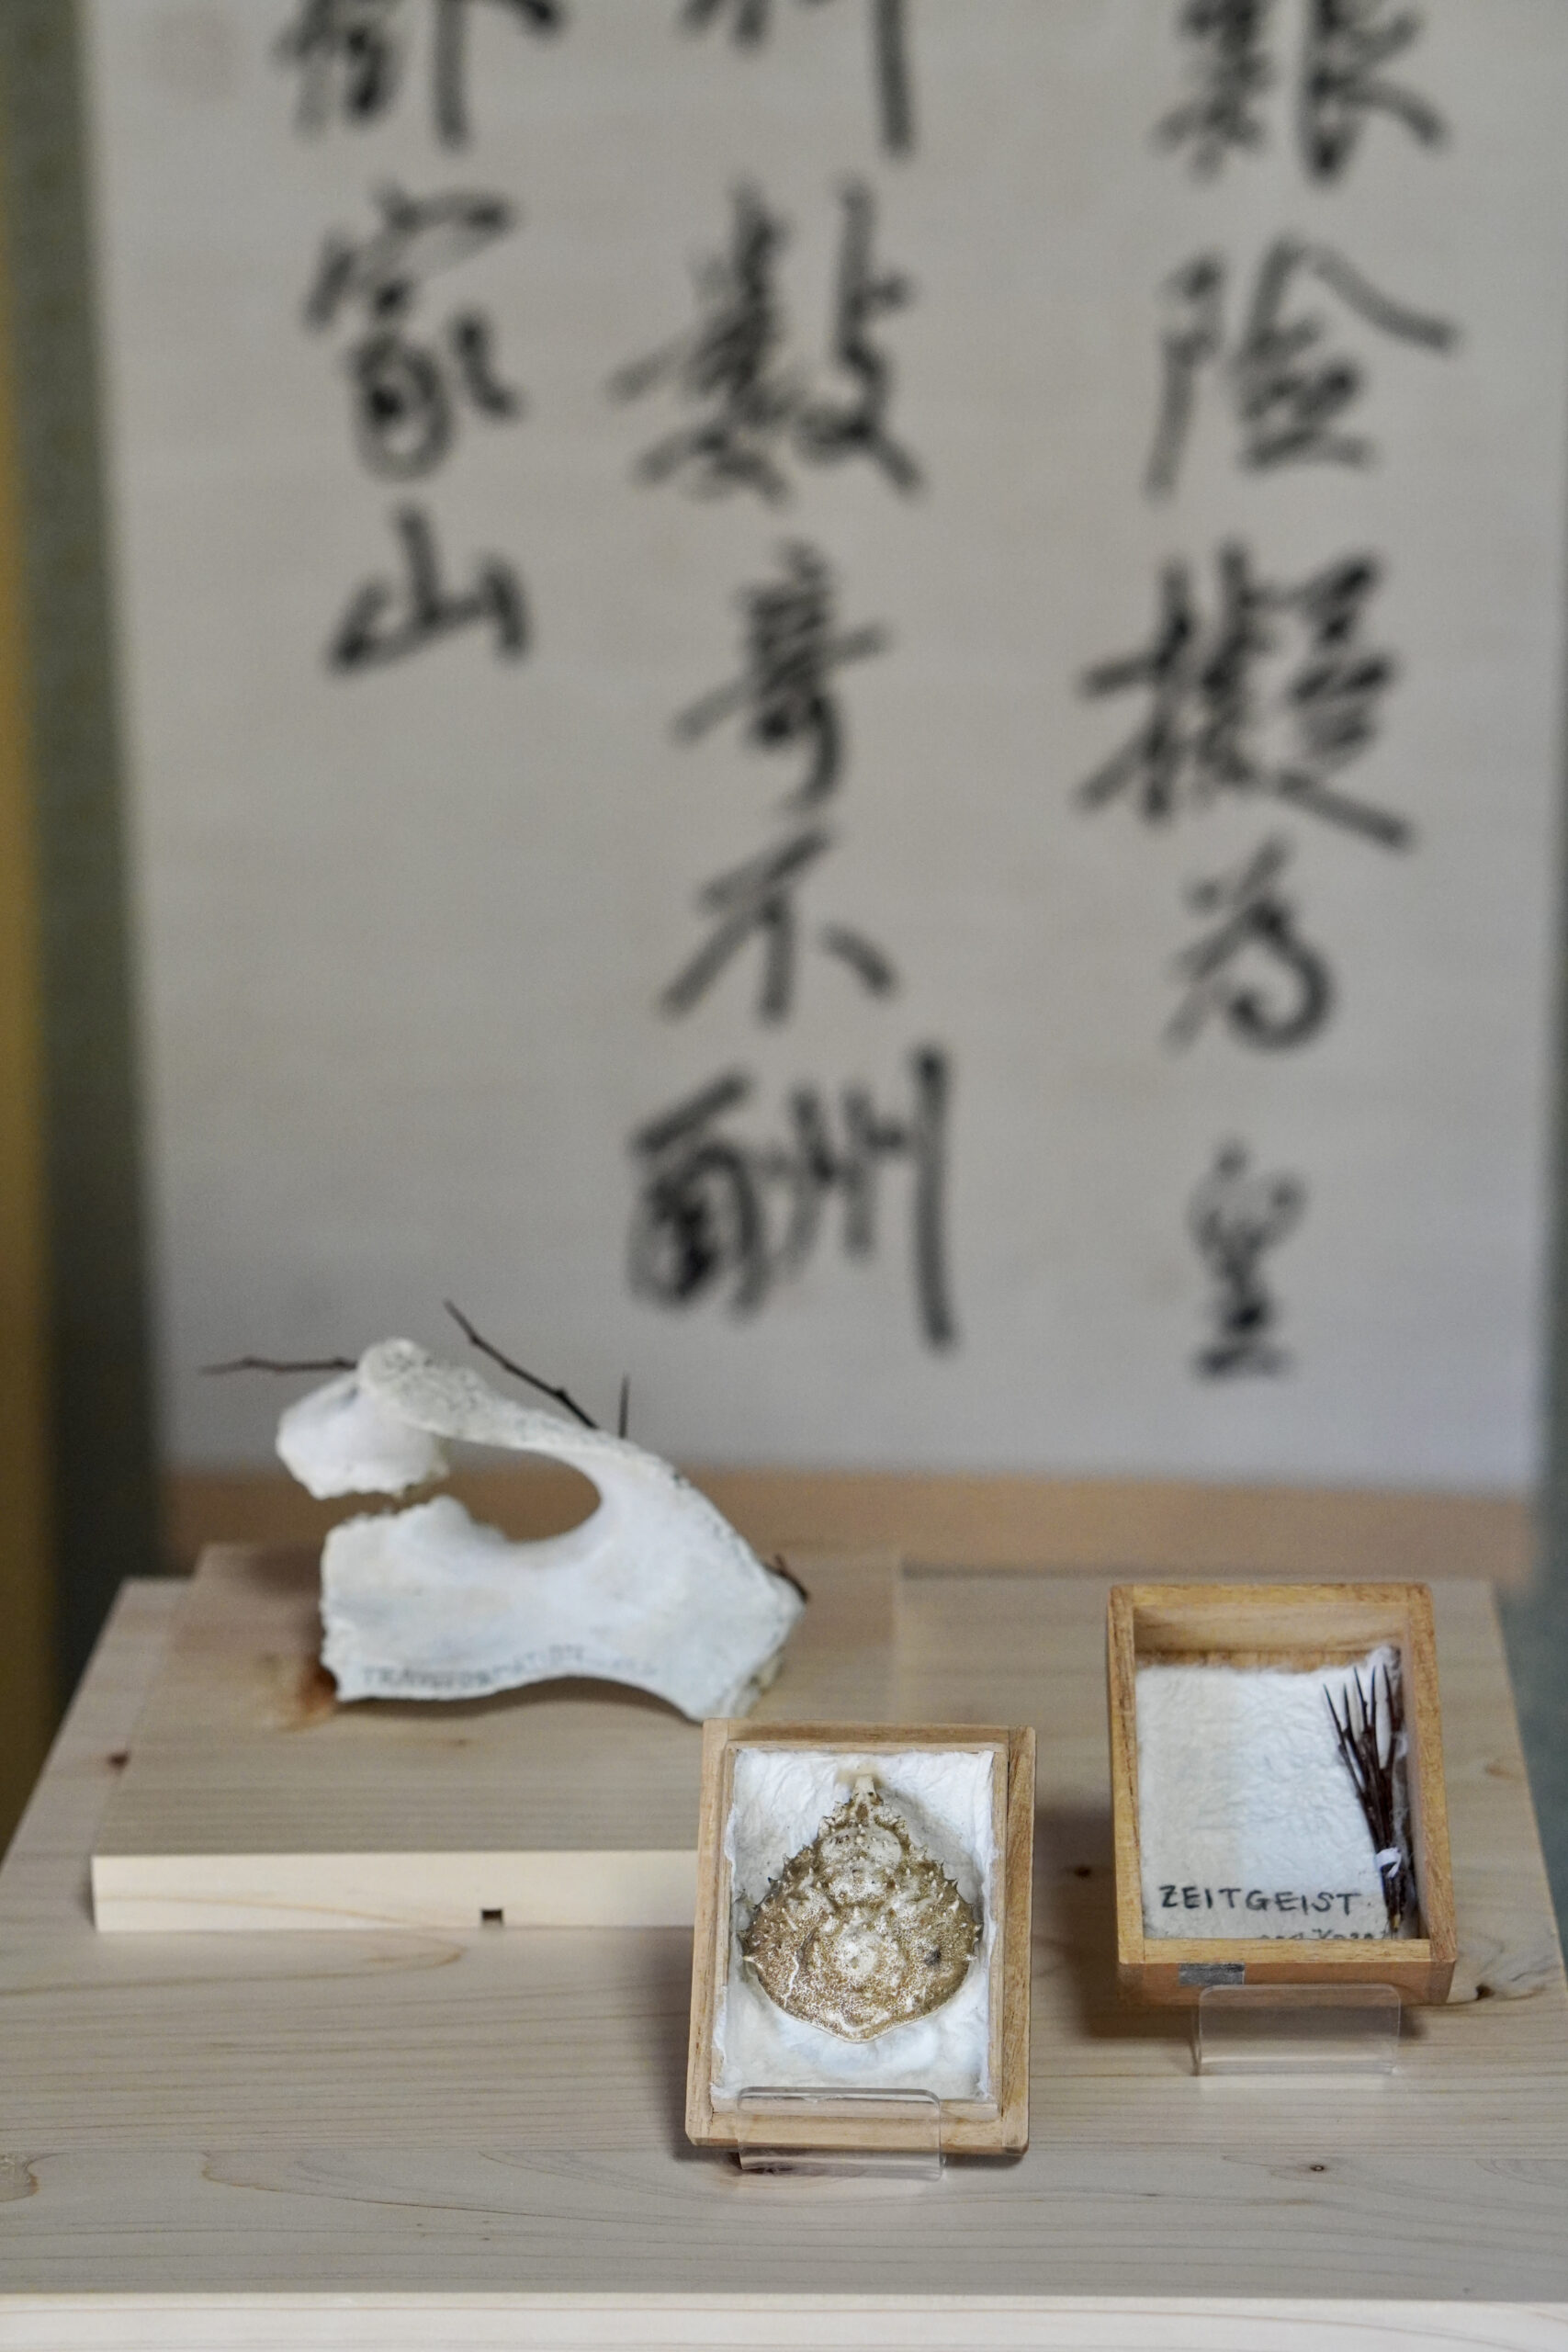 艱險擬為皇
數奇不酬
家山
TRANSFORMATION
ZEITGEIST